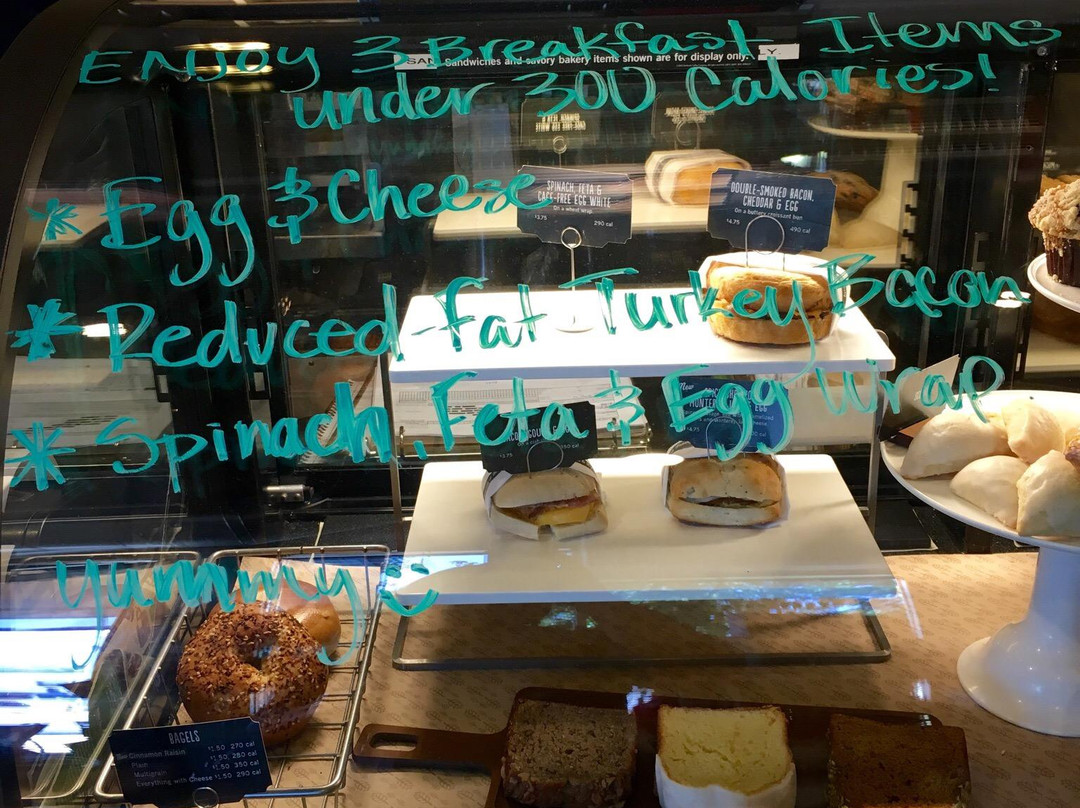 Enjoy 3 Breakfast Items
Sandwiches and savory bakery items shown are for display only.
under 300 Calories!
* Egg & Cheese
SPINACH, FETA &
CAGE-FREE EGG WHITE
On a wheat wrap.
$3.75 290 cal
DOUBLE-SMOKED BACON,
CHEDDAR & EGG
On a buttery croissant bun
$4.75 490 cal
* Reduced-fat Turkey Bacon
* Spinach, Feta & Egg Wrap
New
EGG
Yummy
BAGELS
Cinnamon Raisin $1.50 270 cal
Plain $1.50 280 cal
Multigrain $1.50 350 cal
Everything with Cheese $1.50 290 cal